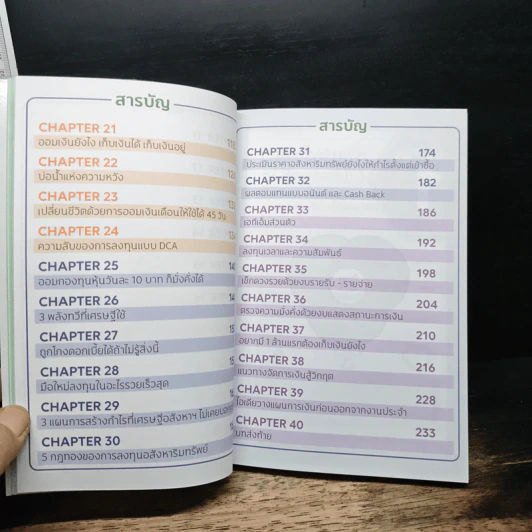 สารบัญ
CHAPTER 21
ออมเงินยังไง เก็บเงินได้ เก็บเงินอยู่
CHAPTER 22
บ่อน้ำแห่งความหวัง
CHAPTER 23
เปลี่ยนชีวิตด้วยการออมเงินเดือนให้ใช้ได้ 45 วัน
CHAPTER 24
ความลับของการลงทุนแบบ DCA
CHAPTER 25
ออมกองทุนหุ้นวันละ 10 บาท ก็มั่งคั่งได้
CHAPTER 26
3 พลังทวีที่เศรษฐีใช้
CHAPTER 27
ถูกโกงดอกเบี้ยได้ถ้าไม่รู้สิ่งนี้
CHAPTER 28
มือใหม่ลงทุนในอะไรรวยเร็วสุด
CHAPTER 29
3 แผนการสร้างกำไรที่เศรษฐีอสังหาฯ ไม่เคยบอก
CHAPTER 30
5 กฎทองของการลงทุนอสังหาริมทรัพย์
สารบัญ
CHAPTER 31 174
ประเมินราคาอสังหาริมทรัพย์ยังไงให้กำไรตั้งแต่เข้าซื้อ
CHAPTER 32 182
ผลตอบแทนแบบอนันต์ และ Cash Back
CHAPTER 33 186
เอทีเอ็มส่วนตัว
CHAPTER 34 192
ลงทุนเวลาและความสัมพันธ์
CHAPTER 35 198
เช็กดวงรวยด้วยงบรายรับ - รายจ่าย
CHAPTER 36 204
ตรวจความมั่งคั่งด้วยงบแสดงสถานะการเงิน
CHAPTER 37 210
อยากมี 1 ล้านแรกต้องเก็บเงินยังไง
CHAPTER 38 216
แนวทางจัดการเงินสู้วิกฤต
CHAPTER 39 228
ไอเดียวางแผนการเงินก่อนออกจากงานประจำ
CHAPTER 40 233
บทส่งท้าย